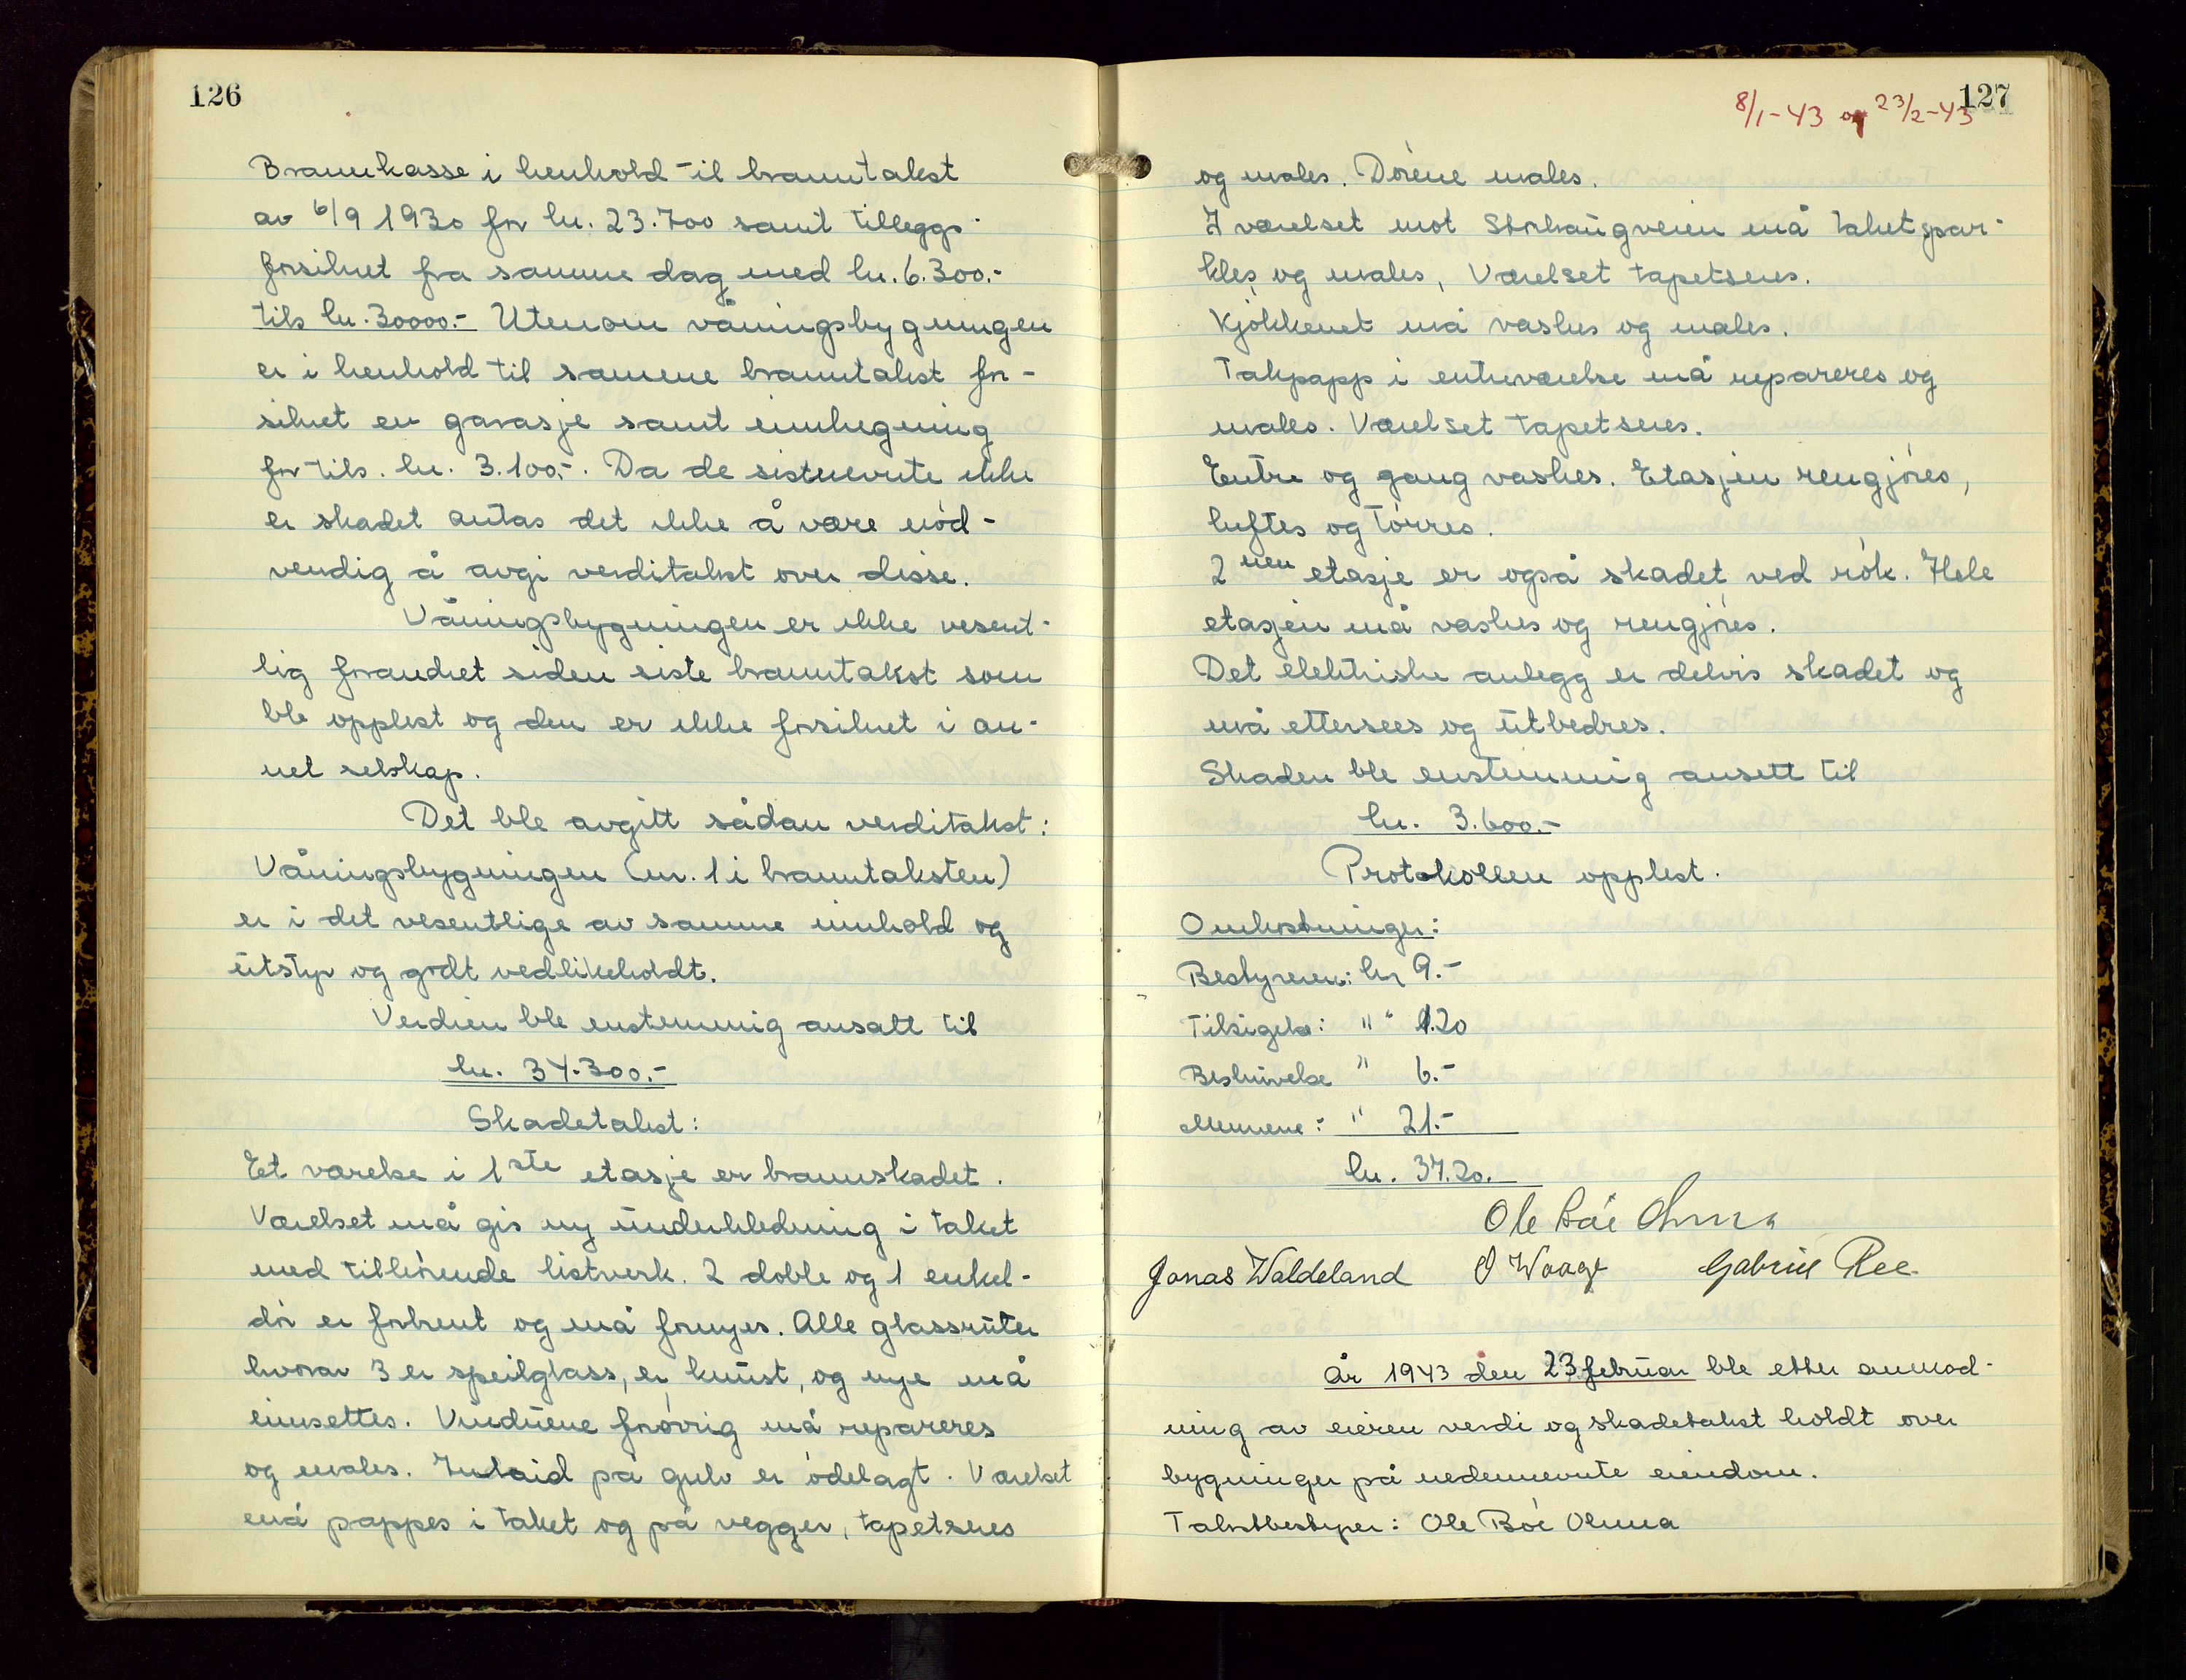 126
Brannkasse i henhold til branntakst
av 6/9 1930 for kr. 23.700 samt tilleggs-
forsikret fra samme dag med kr. 6.300.-
tils kr. 30000.- Utenom våningsbygningen
er i henhold til samme branntakst for-
sikret en garasje samt innhegning
for tils. kr. 3.100,-. Da de sistnevnte ikke
er skadet antas det ikke å være nød-
vendig å avgi verditakst over disse.
Våningsbygningen er ikke vesent-
lig forandret siden siste branntakst som
ble opplest og den er ikke forsikret i an-
net selskap.
Det ble avgitt sådan verditakst:
Våningsbygningen (nr. 1 i branntaksten)
er i det vesentlige av samme innhold og
utstyr og godt vedlikeholdt.
Verdien ble enstemmig ansatt til
kr. 34.300.-
Skadetakst:
Et værelse i 1ste etasje er brannskadet.
Værelset må gis ny underkledning i taket
med tilhørende listverk. 2 doble og 1 enkel-
dør er forbrent og må fornyes. Alle glassruter
hvorav 3 er speilglass, er knust, og nye må
innsettes. Vinduene forøvrig må repareres
og males. Inlaid på gulv er ødelagt. Værelset
må pappes i taket og på vegger, tapetseres
127
8/1-43 og 23/2-43
og males. Dørene males.
I værelset mot Storhaugveien må taket spar-
kles og males, Værelset tapetseres.
Kjøkkenet må vaskes og males.
Takpapp i entreværelse må repareres og
males. Værelset tapetseres.
Entre og gang vaskes. Etasjen rengjøres,
luftes og tørres.
2nen etasje er også skadet ved røk. Hele
etasjen må vaskes og rengjøres.
Det elektriske anlegg er delvis skadet og
må ettersees og utbedres.
Skaden ble enstemmig ansett til
kr. 3.600.-
Protokollen opplest.
Omkostninger:
Bestyreren: kr 9.-
Tilsigelse: " " 1.20
Beskrivelse " 6.-
Mennene: " 21.-
kr. 37.20.-
Ole Bøe Olmma
Jonas Waldeland O Waage Gabriel Ree
År 1943 den 23 februar ble etter anmod-
ning av eieren verdi og skadetakst holdt over
bygninger på nedennevnte eiendom.
Takstbestyrer: Ole Bøe Olmma